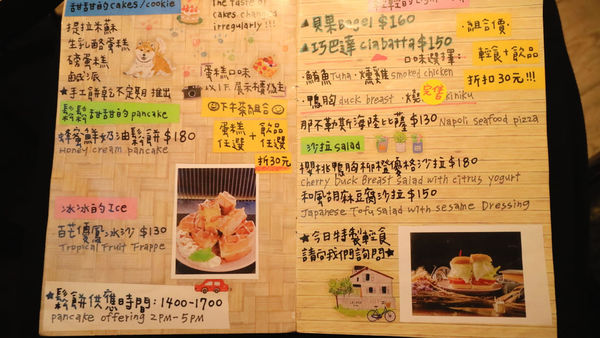 甜甜的cakes/cookie
The taste of
cakes changed
irregularly!!!
提拉米蘇
生乳酪蛋糕
磅蛋糕
鹹派
★手工餅乾不定期推出
蛋糕口味
以1F展示櫃為主
鬆鬆甜甜的pancake
下午茶組合
蜂蜜鮮奶油鬆餅 $180
Honey cream pancake
蛋糕+飲品
任選 任選
折30元
冰冰的Ice
百芒優鳳冰沙 $130
Tropical Fruit Frappe
★鬆餅供應時間:1400-1700
pancake offering 2PM-5PM
▲貝果Bagel $160
▲巧巴達ciabatta $150
組合價
口味選擇:
輕食+飲品
折扣30元!!!
·鮪魚Tuna·燻雞smoked chicken
·鴨胸duck breast
完售
kiniku
那不勒斯海陸比薩 $130 Napoli seafood pizza
沙拉salad
櫻桃鴨胸柳橙優格沙拉$180
cherry Duck Breast salad with citrus yogurt
和風胡麻豆腐沙拉$150
Japanese Tofu Salad with sesame Dressing
★今日特製輕食
請向我們詢問★